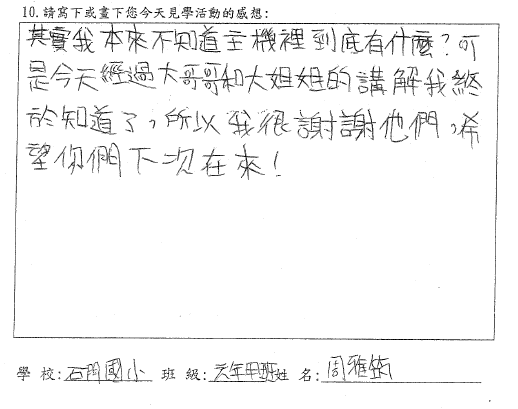 10.請寫下或畫下您今天見學活動的感想:
其實我本來不知道主機裡到底有什麼?可
是今天經過大哥哥和大姐姐的講解我終
於知道了,所以我很謝謝他們,希
望你們下次在來!
學 校:石門國小 班 級:六年甲班姓 名:周雅